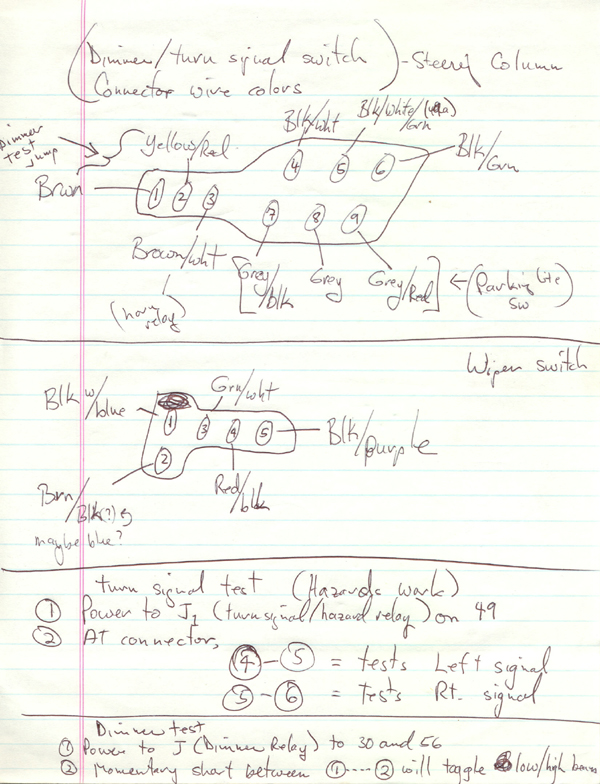 (Dimmer/turn signal switch) - Steering Column
Connector wire colors
Dimmer
test
jump
Yellow/Red
Blk/wht
Blk/white/
Grn
Blk/
Grn
Brwn
1 2 3
4 5 6
7 8 9
Brown/wht
(horn
relay)
[Grey/
blk
Grey
Grey/
Red]
← (Parking lite
sw)
Wiper switch
Blk w/
blue
Grn/wht
1 3 4 5
2
Blk/
purple
Brn/
Blk(?) or
maybe blue?
Red/
blk
turn signal test (Hazards work)
① Power to J1 (turn signal/hazard relay) on 49
② AT connector,
④-⑤ = tests Left signal
⑤-⑥ = tests Rt. signal
Dimmer test
① Power to J (Dimmer Relay) to 30 and 56
② Momentary short between ①----② will toggle low/high beam